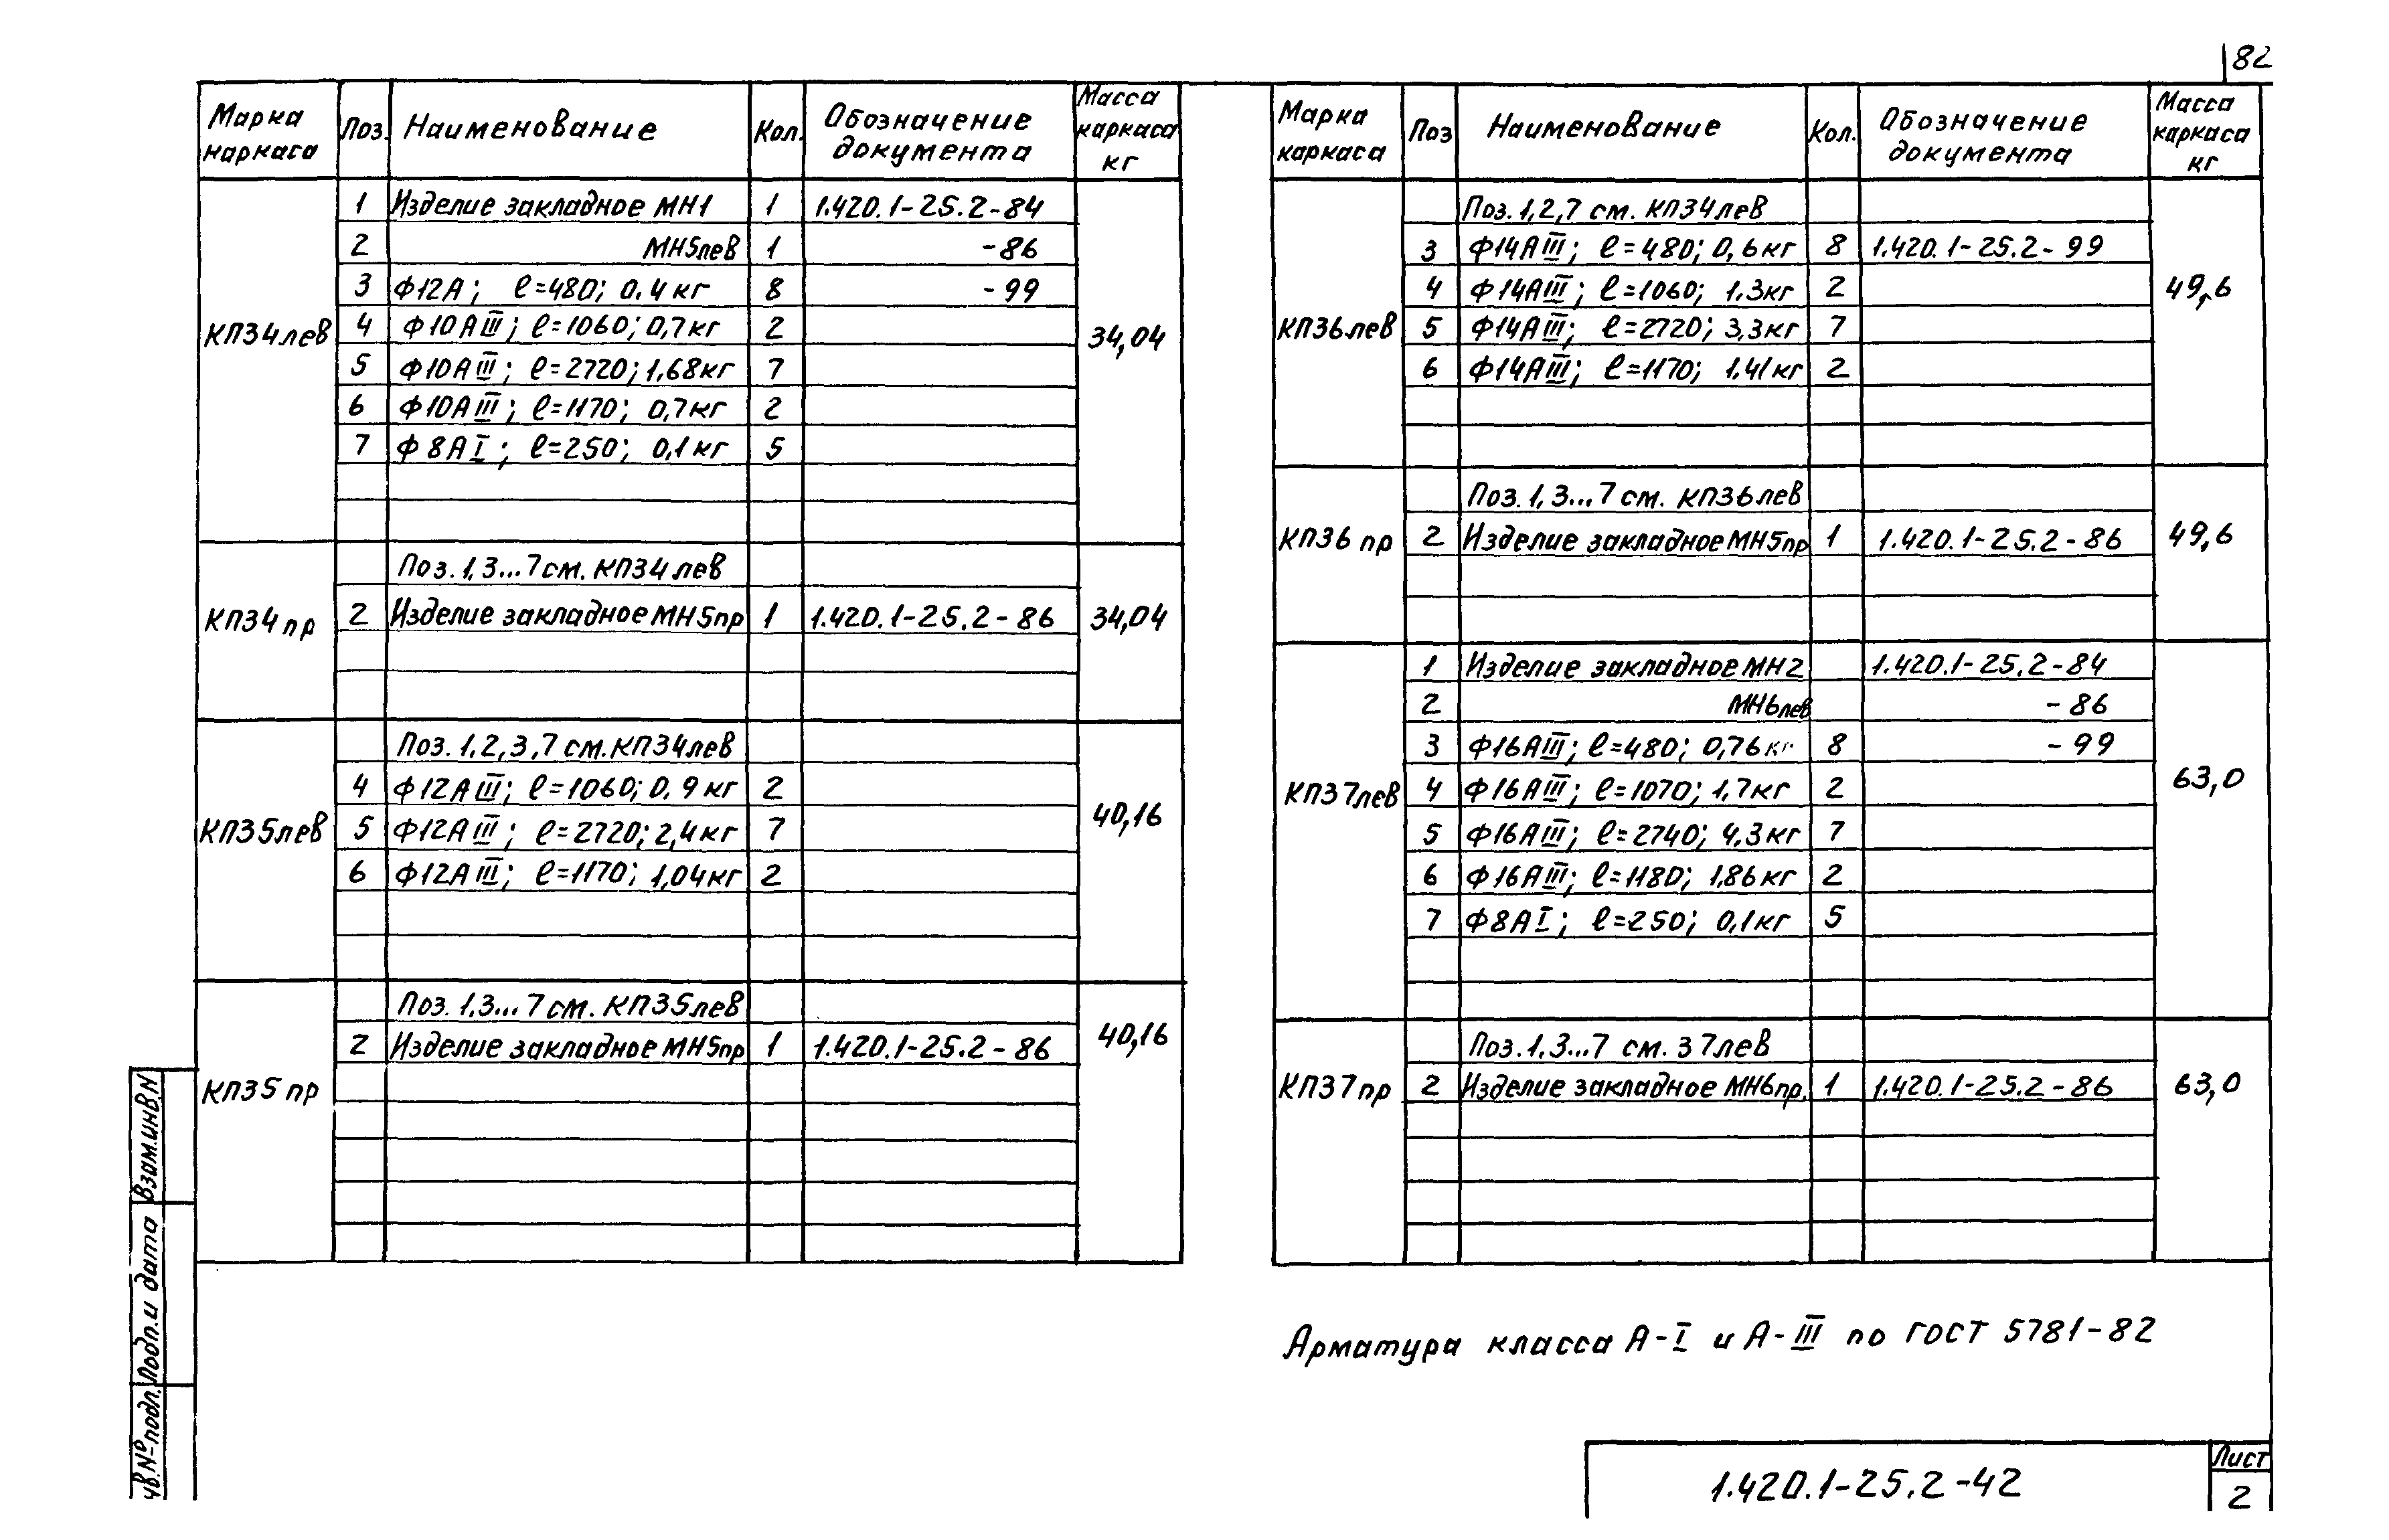 82
Марка каркаса Поз. Наименование Кол. Обозначение документа Масса каркаса кг
КП34лев 34,04
1 Изделие закладное МН1 1 1.420.1-25.2-84
2 МН5лев 1 -86
3 Ф12А; ℓ=480; 0.4кг 8 -99
4 Ф10АIII; ℓ=1060; 0,7кг 2
5 Ф10АIII; ℓ=2720; 1,68кг 7
6 Ф10АIII; ℓ=1170; 0,7кг 2
7 Ф8АI; ℓ=250; 0,1кг 5
КП34пр 34,04
Поз. 1,3...7 см. КП34лев
2 Изделие закладное МН5пр 1 1.420.1-25.2-86
КП35лев 40,16
Поз. 1,2,3,7 см. КП34лев
4 Ф12АIII; ℓ=1060; 0,9кг 2
5 Ф12АIII; ℓ=2720; 2,4кг 7
6 Ф12АIII; ℓ=1170; 1,04кг 2
КП35пр 40,16
Поз. 1,3...7 см. КП35лев
2 Изделие закладное МН5пр 1 1.420.1-25.2-86
Марка каркаса Поз Наименование Кол. Обозначение документа Масса каркаса кг
КП36лев 49,6
Поз. 1,2,7 см. КП34лев
3 Ф14АIII; ℓ=480; 0,6кг 8 1.420.1-25.2-99
4 Ф14АIII; ℓ=1060; 1,3кг 2
5 Ф14АIII; ℓ=2720; 3,3кг 7
6 Ф14АIII; ℓ=1170; 1,41кг 2
КП36пр 49,6
Поз. 1,3...7 см. КП36лев
2 Изделие закладное МН5пр 1 1.420.1-25.2-86
КП37лев 63,0
1 Изделие закладное МН2 1.420.1-25.2-84
2 МН6лев -86
3 Ф16АIII; ℓ=480; 0,76кг 8 -99
4 Ф16АIII; ℓ=1070; 1,7кг 2
5 Ф16АIII; ℓ=2740; 4,3кг 7
6 Ф16АIII; ℓ=1180; 1,86кг 2
7 Ф8АI; ℓ=250; 0,1кг 5
КП37пр 63,0
Поз. 1,3...7 см. 37лев
2 Изделие закладное МН6пр. 1 1.420.1-25.2-86
Арматура класса А-I и А-III по ГОСТ 5781-82
Взам.инв.N
Подп.и дата
нв.№подл.
1.420.1-25.2-42
Лист
2